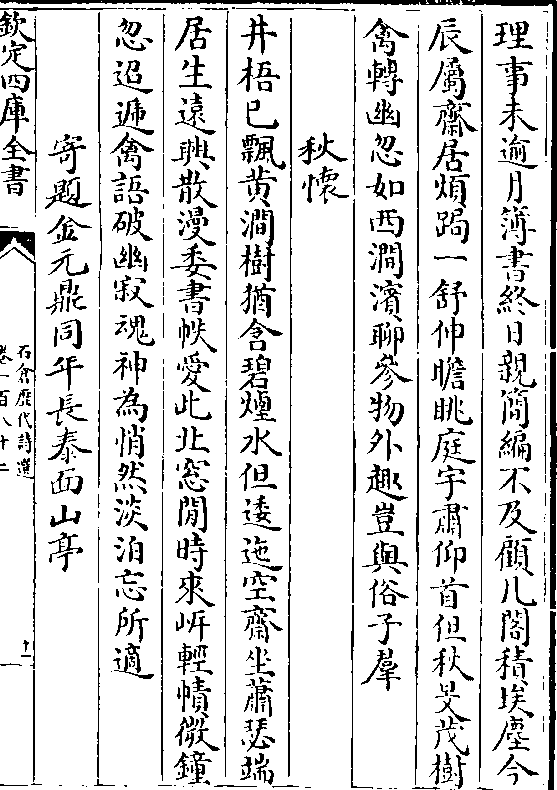 理事未逾月簿書終日親簡編不及顧几閣積埃塵今
辰屬齋居煩跼一舒伸瞻眺庭宇肅仰首但秋旻茂樹
禽轉幽忽如西澗濱聊參物外趣豈與俗子羣
秋懷
井梧已飄黄澗樹猶含碧煙水但逶迤空齋坐蕭瑟端
居生遠興散漫委書帙愛此北窓閒時來岸輕幘微鐘
忽迢遞禽語破幽寂魂神為悄然淡泊忘所適
寄題金元鼎同年長泰面山亭
欽定四庫全書
石倉歷代詩選
卷一百八十二
十一